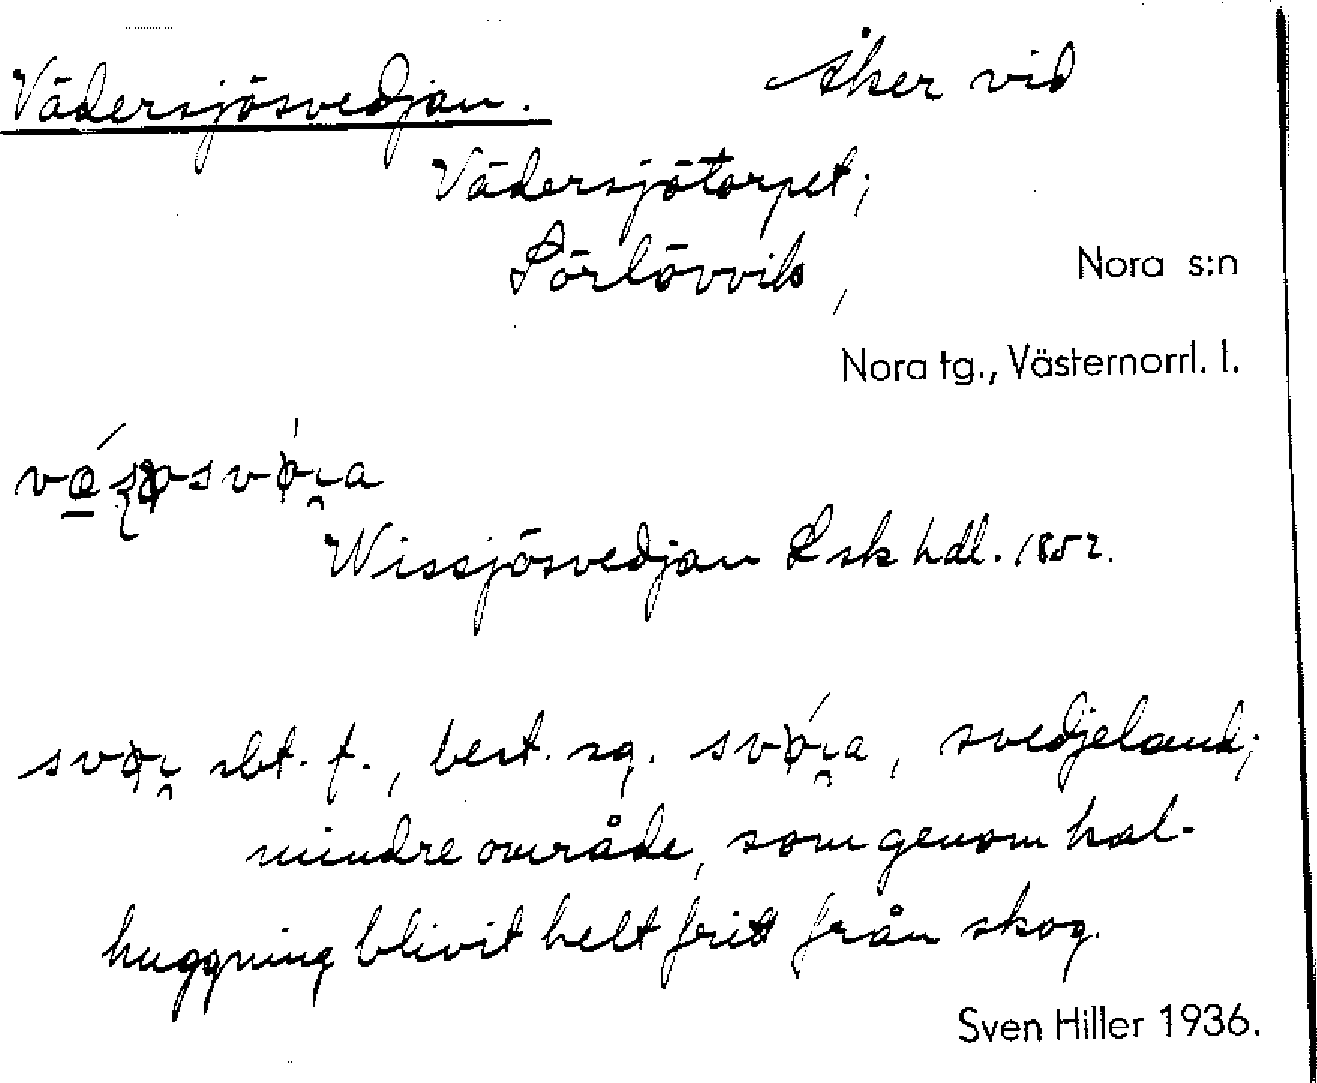 Vädersjösvedjan. Åker vid
Vädersjötorpet;
Sörlövvik,
Nora s:n
Nora tg., Västernorrl. l.
Wissjösvedjan Lsk hdl. 1852.
sbt. f., best. sg. , svedjeland;
mindre område, som genom kal-
huggning blivit helt fritt från skog.
Sven Hiller 1936.